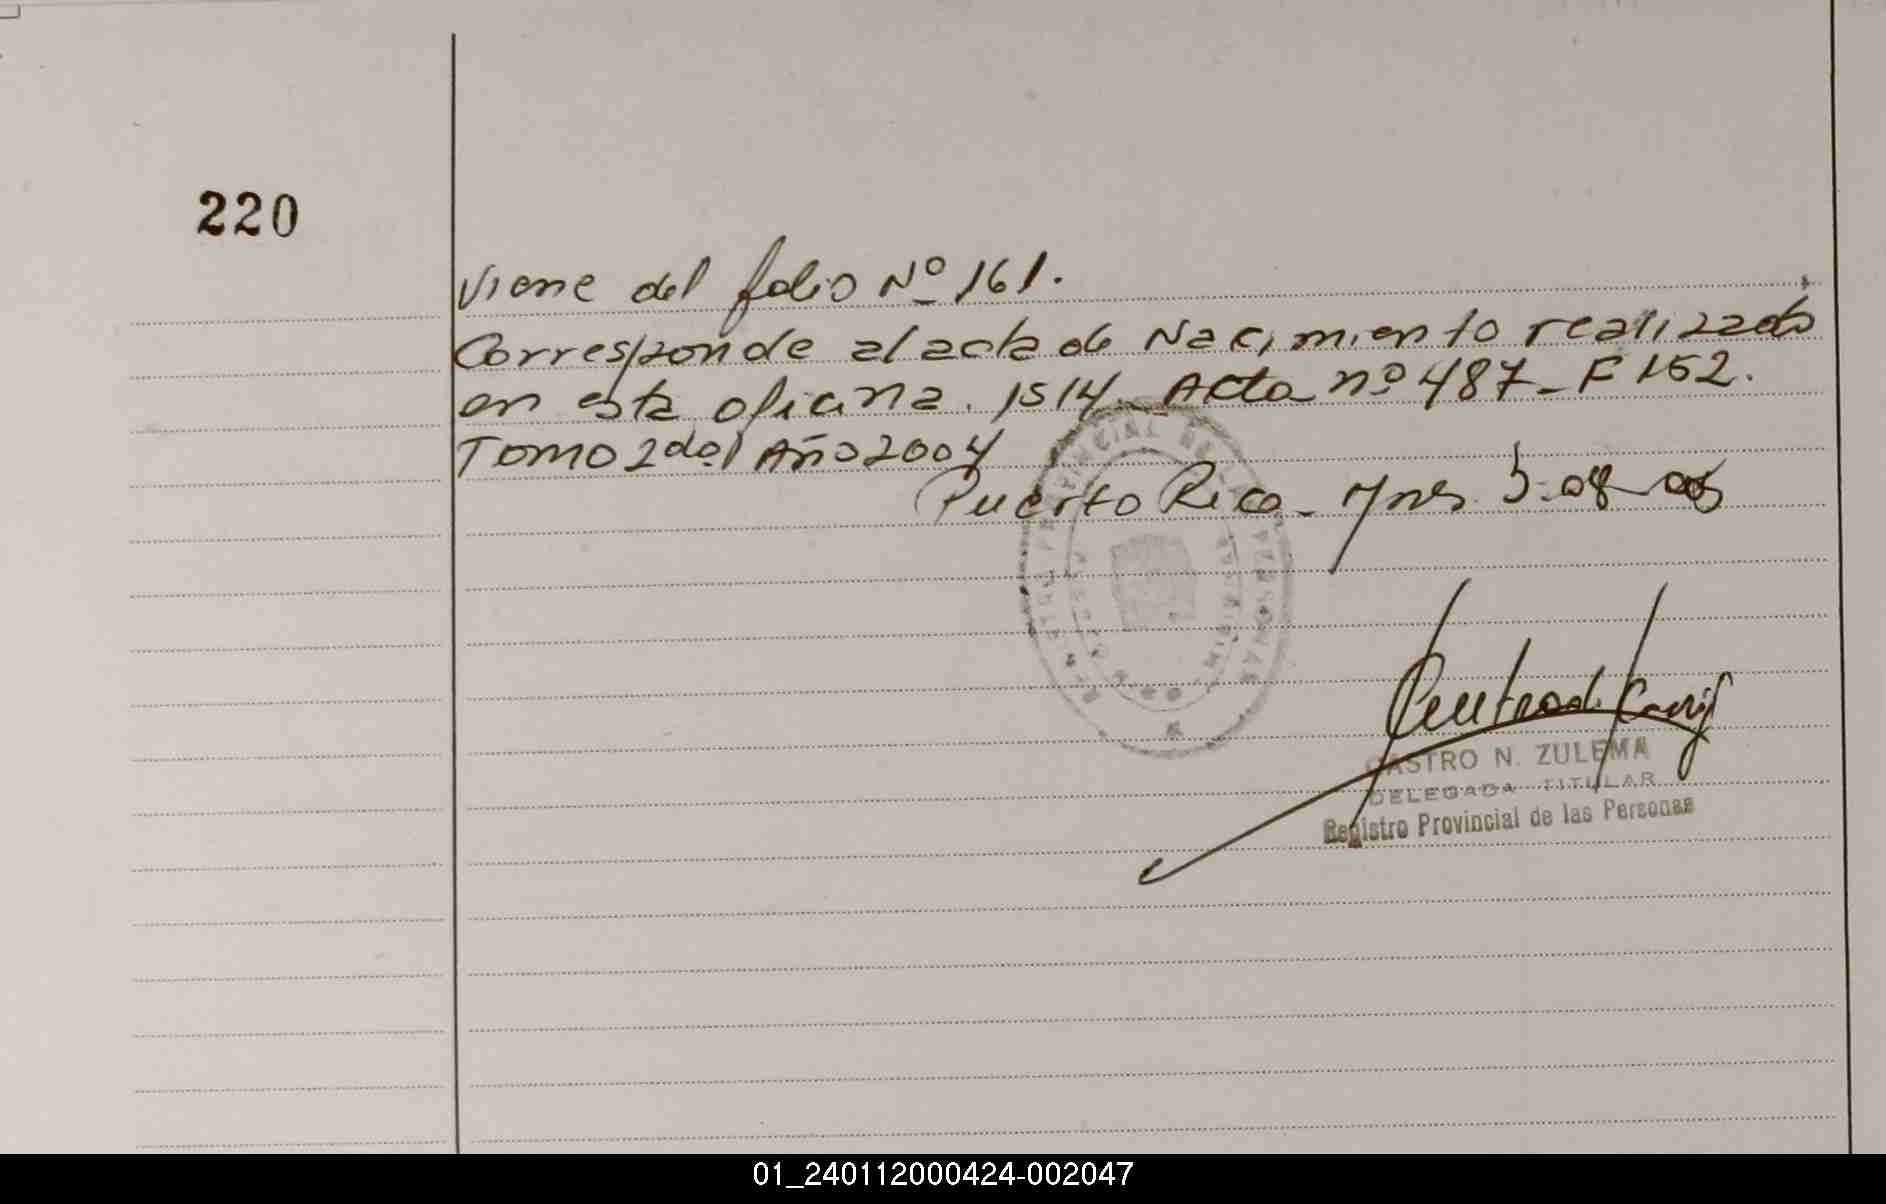 220
Viene del folio Nº 161.
Corresponde al acta de Nacimiento realizado
en esta oficina. 1514. Acta nº 487 - F 152.
Tomo 2 del Año 2004
Puerto Rico - Mnes 5-08-05
REGISTRO PROVINCIAL DE LAS PERSONAS
MISIONES
CASTRO N. ZULEMA
DELEGADA TITULAR
Registro Provincial de las Personas
01_240112000424-002047